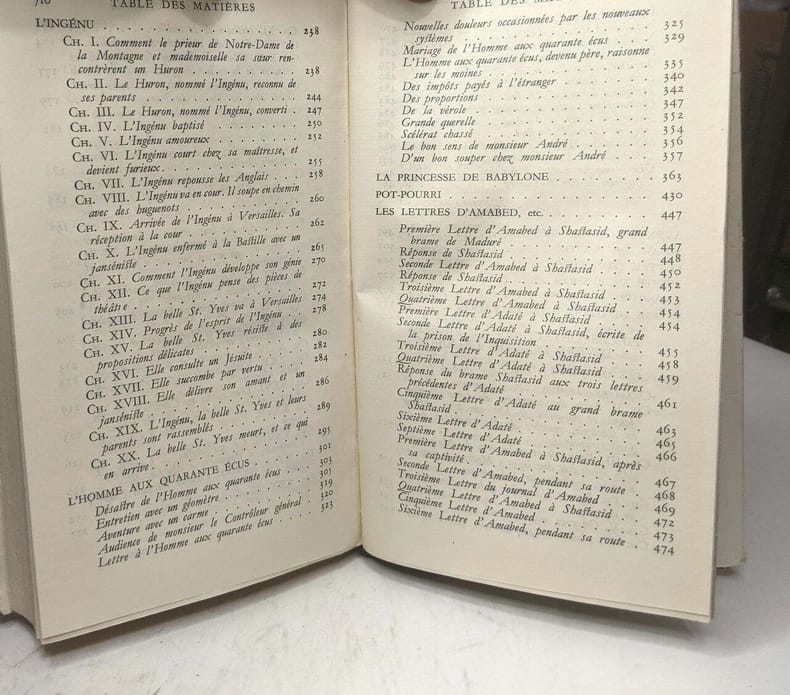 TABLE DES MATIÈRES
L'INGÉNU . . . 238
CH. I. Comment le prieur de Notre-Dame de
la Montagne et mademoiselle sa sœur ren-
contrèrent un Huron . . . 238
CH. II. Le Huron, nommé l'Ingénu, reconnu de
ses parents . . . 244
CH. III. Le Huron, nommé l'Ingénu, converti . 247
CH. IV. L'Ingénu baptisé . . . 250
CH. V. L'Ingénu amoureux . . . 252
CH. VI. L'Ingénu court chez sa maîtresse, et
devient furieux . . . 255
CH. VII. L'Ingénu repousse les Anglais . . 258
CH. VIII. L'Ingénu va en cour. Il soupe en chemin
avec des huguenots . . . 260
CH. IX. Arrivée de l'Ingénu à Versailles. Sa
réception à la cour . . . 262
CH. X. L'Ingénu enfermé à la Bastille avec un
janséniste . . . 265
CH. XI. Comment l'Ingénu développe son génie 270
CH. XII. Ce que l'Ingénu pense des pièces de
théâtre . . . 272
CH. XIII. La belle St. Yves va à Versailles 274
CH. XIV. Progrès de l'esprit de l'Ingénu . . 278
CH. XV. La belle St. Yves résiste à des
propositions délicates . . . 280
CH. XVI. Elle consulte un Jésuite . . . 282
CH. XVII. Elle succombe par vertu . . . 284
CH. XVIII. Elle délivre son amant et un
janséniste . . . 286
CH. XIX. L'Ingénu, la belle St. Yves et leurs
parents sont rassemblés . . . 289
CH. XX. La belle St. Yves meurt, et ce qui
en arrive . . . 295
L'HOMME AUX QUARANTE ÉCUS . . . 301
Désastre de l'Homme aux quarante écus . . 303
Entretien avec un géomètre . . . 305
Aventure avec un carme . . . 319
Audience de monsieur le Contrôleur général 320
Lettre à l'Homme aux quarante écus . . . 323
TABLE DES
Nouvelles douleurs occasionnées par les nouveaux
systèmes . . . 325
Mariage de l'Homme aux quarante écus . . 329
L'Homme aux quarante écus, devenu père, raisonne
sur les moines . . . 335
Des impôts payés à l'étranger . . . 340
Des proportions . . . 342
De la vérole . . . 347
Grande querelle . . . 352
Scélérat chassé . . . 354
Le bon sens de monsieur André . . . 356
D'un bon souper chez monsieur André . . 357
LA PRINCESSE DE BABYLONE . . . 363
POT-POURRI . . . 430
LES LETTRES D'AMABED, etc. . . . 447
Première Lettre d'Amabed à Shastasid, grand
brame de Maduré . . . 447
Réponse de Shastasid . . . 448
Seconde Lettre d'Amabed à Shastasid . . . 450
Réponse de Shastasid . . . 452
Troisième Lettre d'Amabed à Shastasid . . 453
Quatrième Lettre d'Amabed à Shastasid . . 454
Première Lettre d'Adaté à Shastasid . . . 454
Seconde Lettre d'Adaté à Shastasid, écrite de
la prison de l'Inquisition . . . 455
Troisième Lettre d'Adaté à Shastasid . . . 458
Quatrième Lettre d'Adaté à Shastasid . . . 459
Réponse du brame Shastasid aux trois lettres
précédentes d'Adaté . . . 461
Cinquième Lettre d'Adaté au grand brame
Shastasid . . . 463
Sixième Lettre d'Adaté . . . 465
Septième Lettre d'Adaté . . . 466
Première Lettre d'Amabed à Shastasid, après
sa captivité . . . 467
Seconde Lettre d'Amabed, pendant sa route . 468
Troisième Lettre du journal d'Amabed . . 469
Quatrième Lettre d'Amabed à Shastasid . . 472
Cinquième Lettre d'Amabed . . . 473
Sixième Lettre d'Amabed, pendant sa route . 474